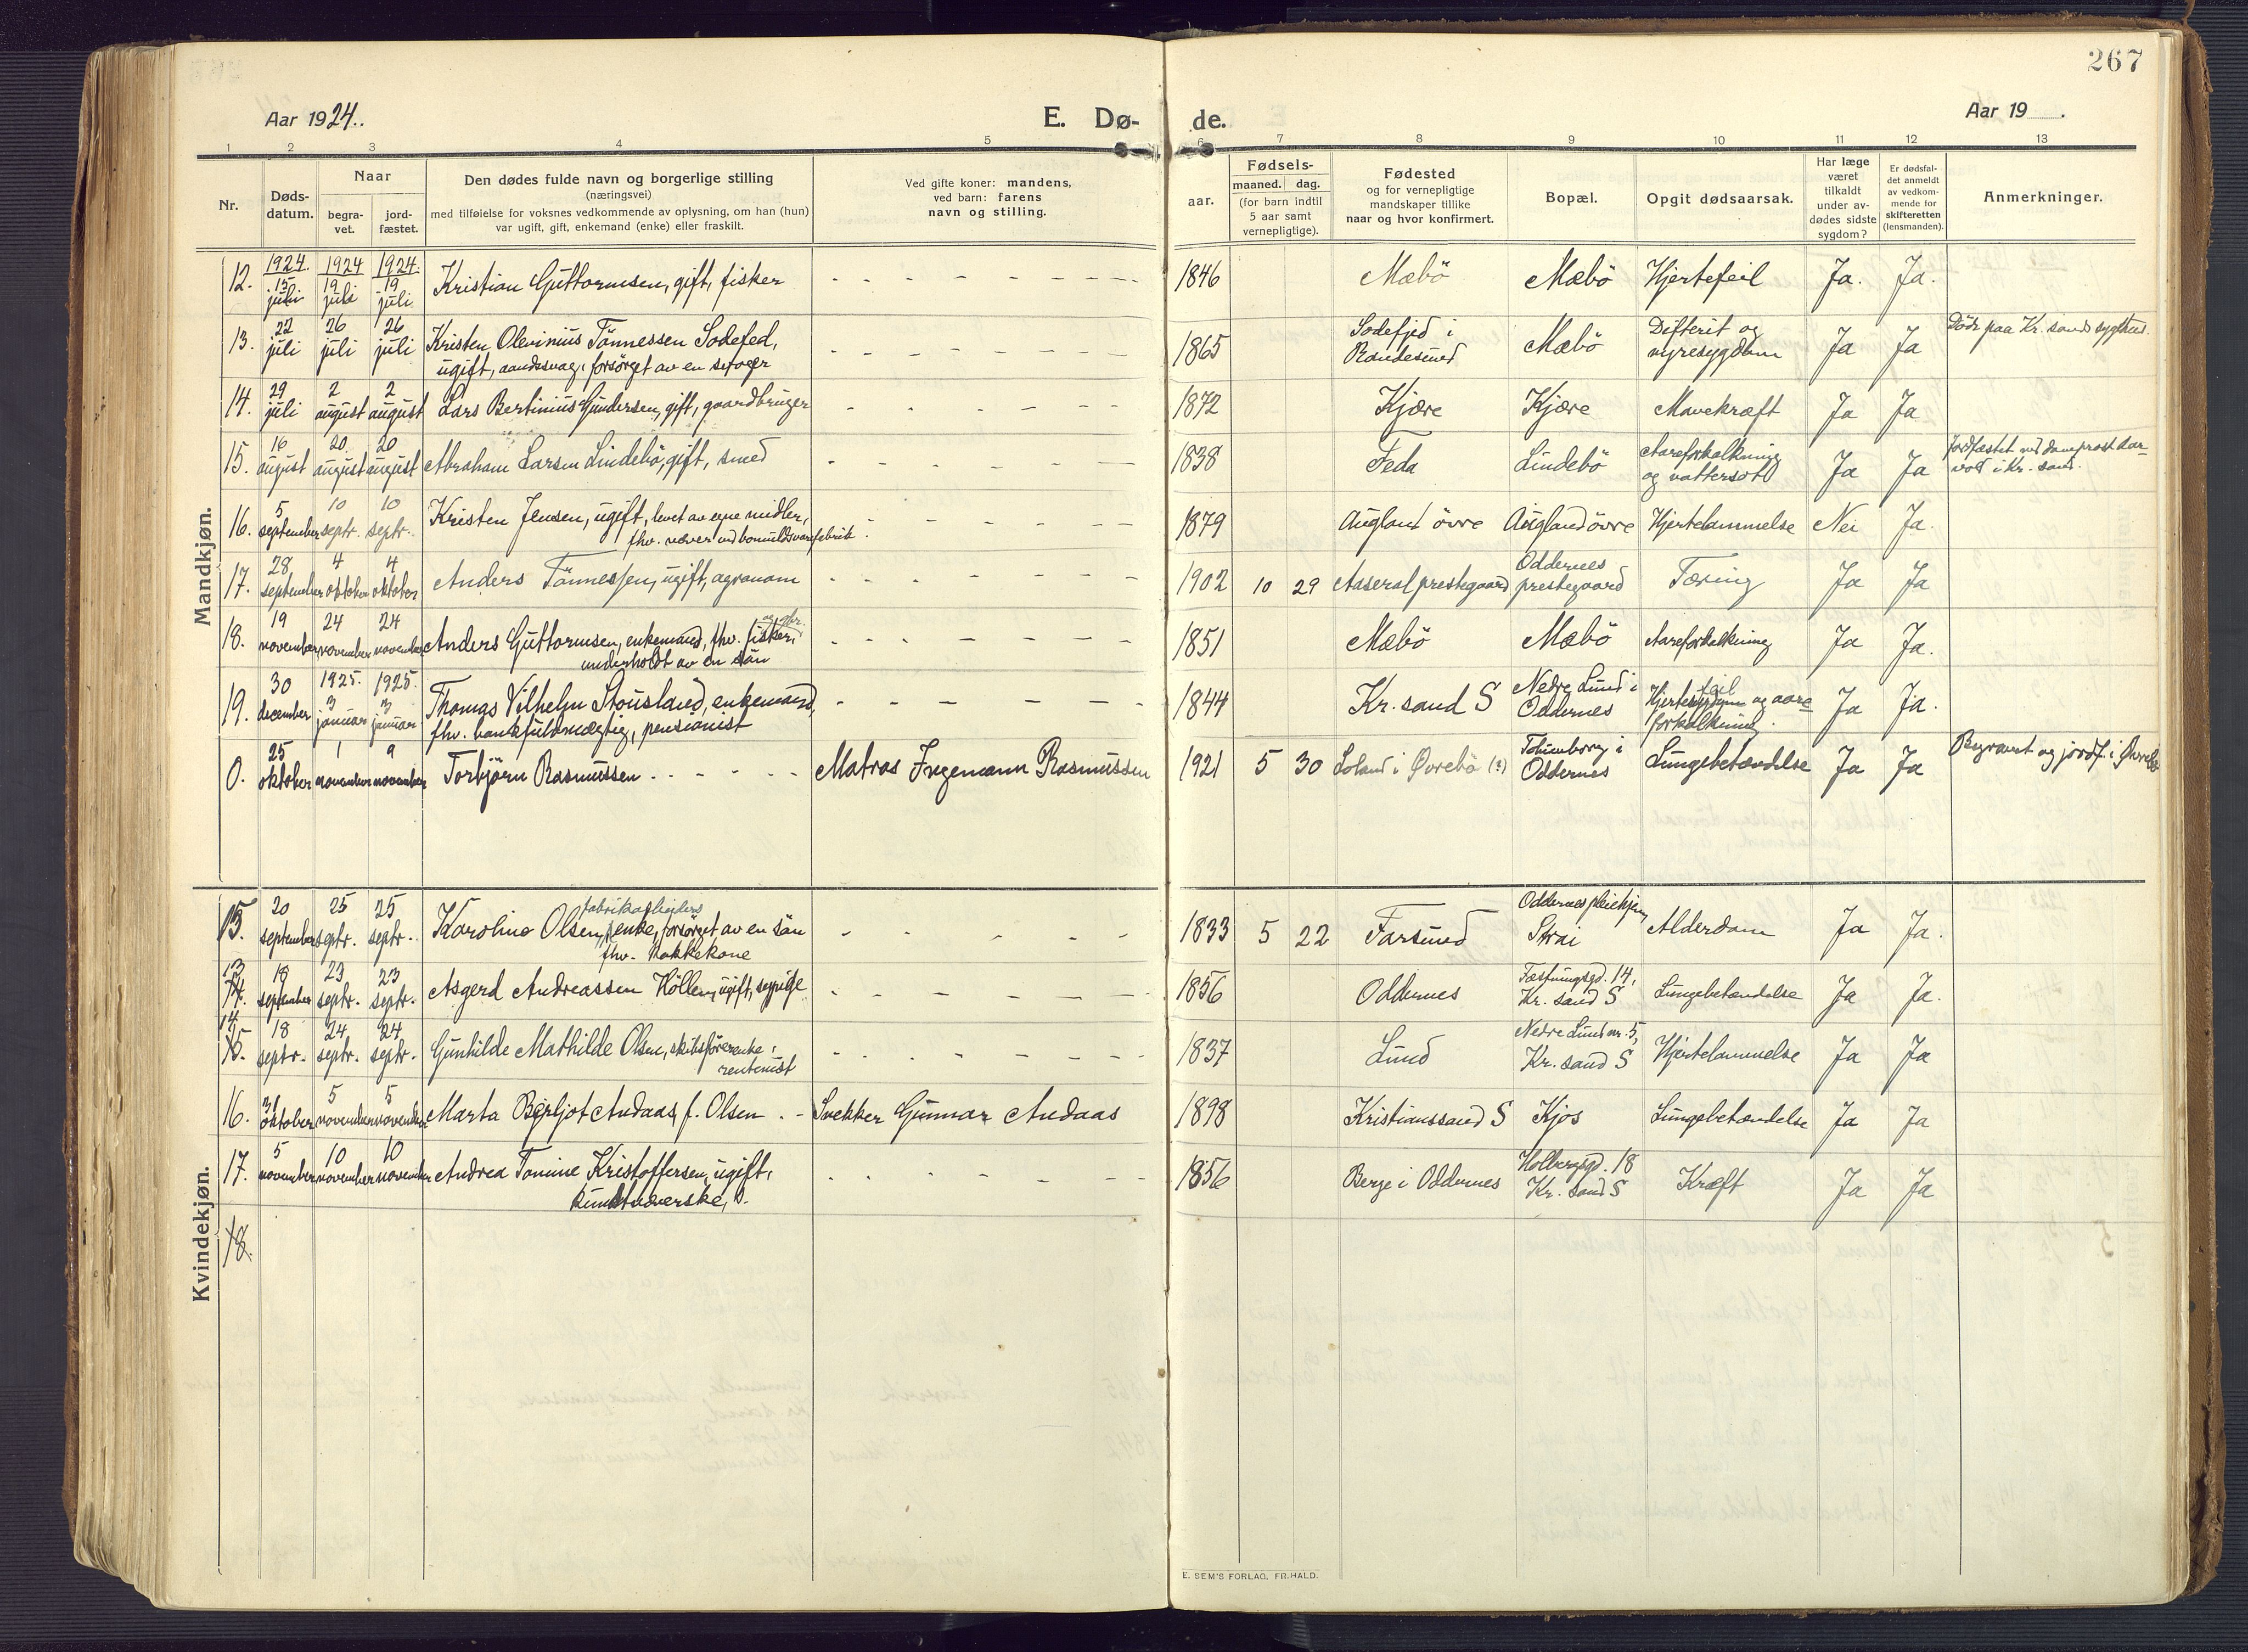 267
Aar 1924.
E. Dø-
de.
Aar 19
1 2 3 4 5 6 7 8 9 10 11 12 13
Nr.
Døds-
datum.
Naar
begra-
vet.
jord-
fæstet.
Den dødes fulde navn og borgerlige stilling
(næringsvei)
med tilføielse for voksnes vedkommende av oplysning, om han (hun)
var ugift, gift, enkemand (enke) eller fraskilt.
Ved gifte koner: mandens,
ved barn: farens
navn og stilling.
aar.
Fødsels-
maaned. dag.
(for barn indtil
5 aar samt
vernepligtige).
Fødested
og for vernepligtige
mandskaper tillike
naar og hvor konfirmert.
Bopæl.
Opgit dødsaarsak.
Har læge
været
tilkaldt
under av-
dødes sidste
sygdom?
Er dødsfal-
det anmeldt
av vedkom-
mende for
skifteretten
(lensmanden).
Anmerkninger.
Mandkjøn.
12. 1924 15 juli 1924 19 juli 1924 19 juli Kristian Guttormsen, gift, fisker 1846 Mæbö Mæbö Hjertefeil Ja. Ja.
13. 22 juli 26 juli 26 juli Kristen Olevinius Tönnessen Sodefed,
ugift, aandssvag, forsörget av en svoger 1865 Sodefjed i
Randesund Mæbö Difterit og
nyresygdom Ja Ja Döde paa Kr. sands sygehus.
14. 29 juli 2 august 2 august Lars Bertinius Gundersen, gift, gaardbruger 1872 Kjære Kjære Mavekræft Ja Ja
15. 16 august 20 august 20 august Abraham Larsen Lindebö, gift, smed 1838 Feda Lindebö Aareforkalkning
og vattersot Ja Ja Jordfæstet ved domprost
i Kr. sand.
16. 5 september 10 septr. 10 septr. Kristen Jensen, ugift, levet av egne midler,
fhv. væver ved bomuldsvarefabrik. 1879 Augland övre Augland övre Hjertelammelse Nei Ja.
17. 28 september 4 oktober 4 oktober Anders Tönnessen, ugift, agronom 1902 10 29 Aaseral prestegaard Oddernes
prestegaard Tæring Ja Ja
18. 19 november 24 november 24 november Anders Guttormsen, enkemand, fhv. fisker, og gbr.
underholdt av en sön 1851 Mæbö Mæbö Aareforkalkning Ja Ja.
19. 30 december 1925. 3 januar 1925. 3 januar Thomas Vilhelm Stousland, enkemand,
fhv. bankfuldmægtig, pensionist 1844 Kr. sand S Nedre Lund i
Oddernes Hjertefeil og aare-
forkalkning. Ja Ja.
0. 25 oktober 1 november 9 november Torbjörn Rasmussen Matros Ingemann Rasmussen 1921 5 30 Loland i Øvrebö (?)
Oddernes Lungebetændelse Ja Ja Begravet og jordf. i Øvrebö
Kvindekjøn.
15. 20 september 25 septr. 25 septr. Karoline Olsen, fabrikarbeiders enke, forsörget av en sön
fhv. kokkekone 1833 5 22 Farsund Oddernes pleiehjem,
Strai Alderdom Ja Ja.
13 14. 18 september 23 septr. 23 septr. Asgerd Andreassen Höllen, ugift, sypige 1856 Oddernes Fæstningsgd. 14,
Kr. sand S Lungebetændelse Ja Ja.
14. 15. 18 septr. 24 septr. 24 septr. Gunhilde Mathilde Olsen, skibsförerenke,
rentenist 1837 Lund Nedre Lund nr. 5,
Kr. sand S Hjertelammelse Ja Ja
16. 31 oktober 5 november 5 november Marta Bergljot Andaas, f. Olsen Snekker Gunnar Andaas 1898 Kristianssand S Kjos Lungebetændelse Ja Ja
17. 5 november 10 november 10 november Andrea Tomine Kristoffersen, ugift,
kunstvæverske, 1856 Berge i Oddernes Holbergsgd. 18
Kr. sand S Kræft Ja Ja
18.
E. SEM'S FORLAG, FR.HALD.